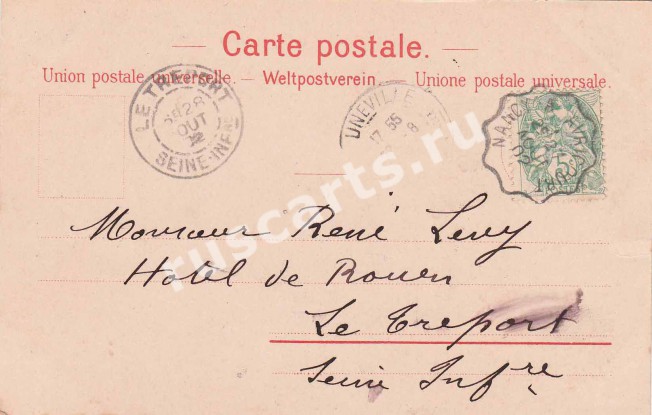 Carte postale.
Union postale universelle. — Weltpostverein. — Unione postale universale.
LE TREPORT
28
OUT
SEINE-INFRE
LUNEVILLE
17 55
8
NANCY A AVRI
5c
Monsieur René Levy
Hotel de Rouen
Le Treport
Seine Infre
ruscarts.ru